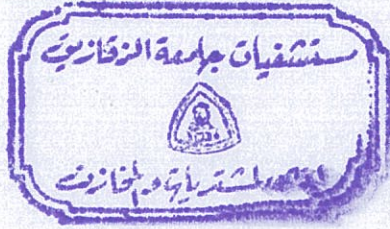 مستشفيات جامعة الزقازيق
المشتريات والمخازن